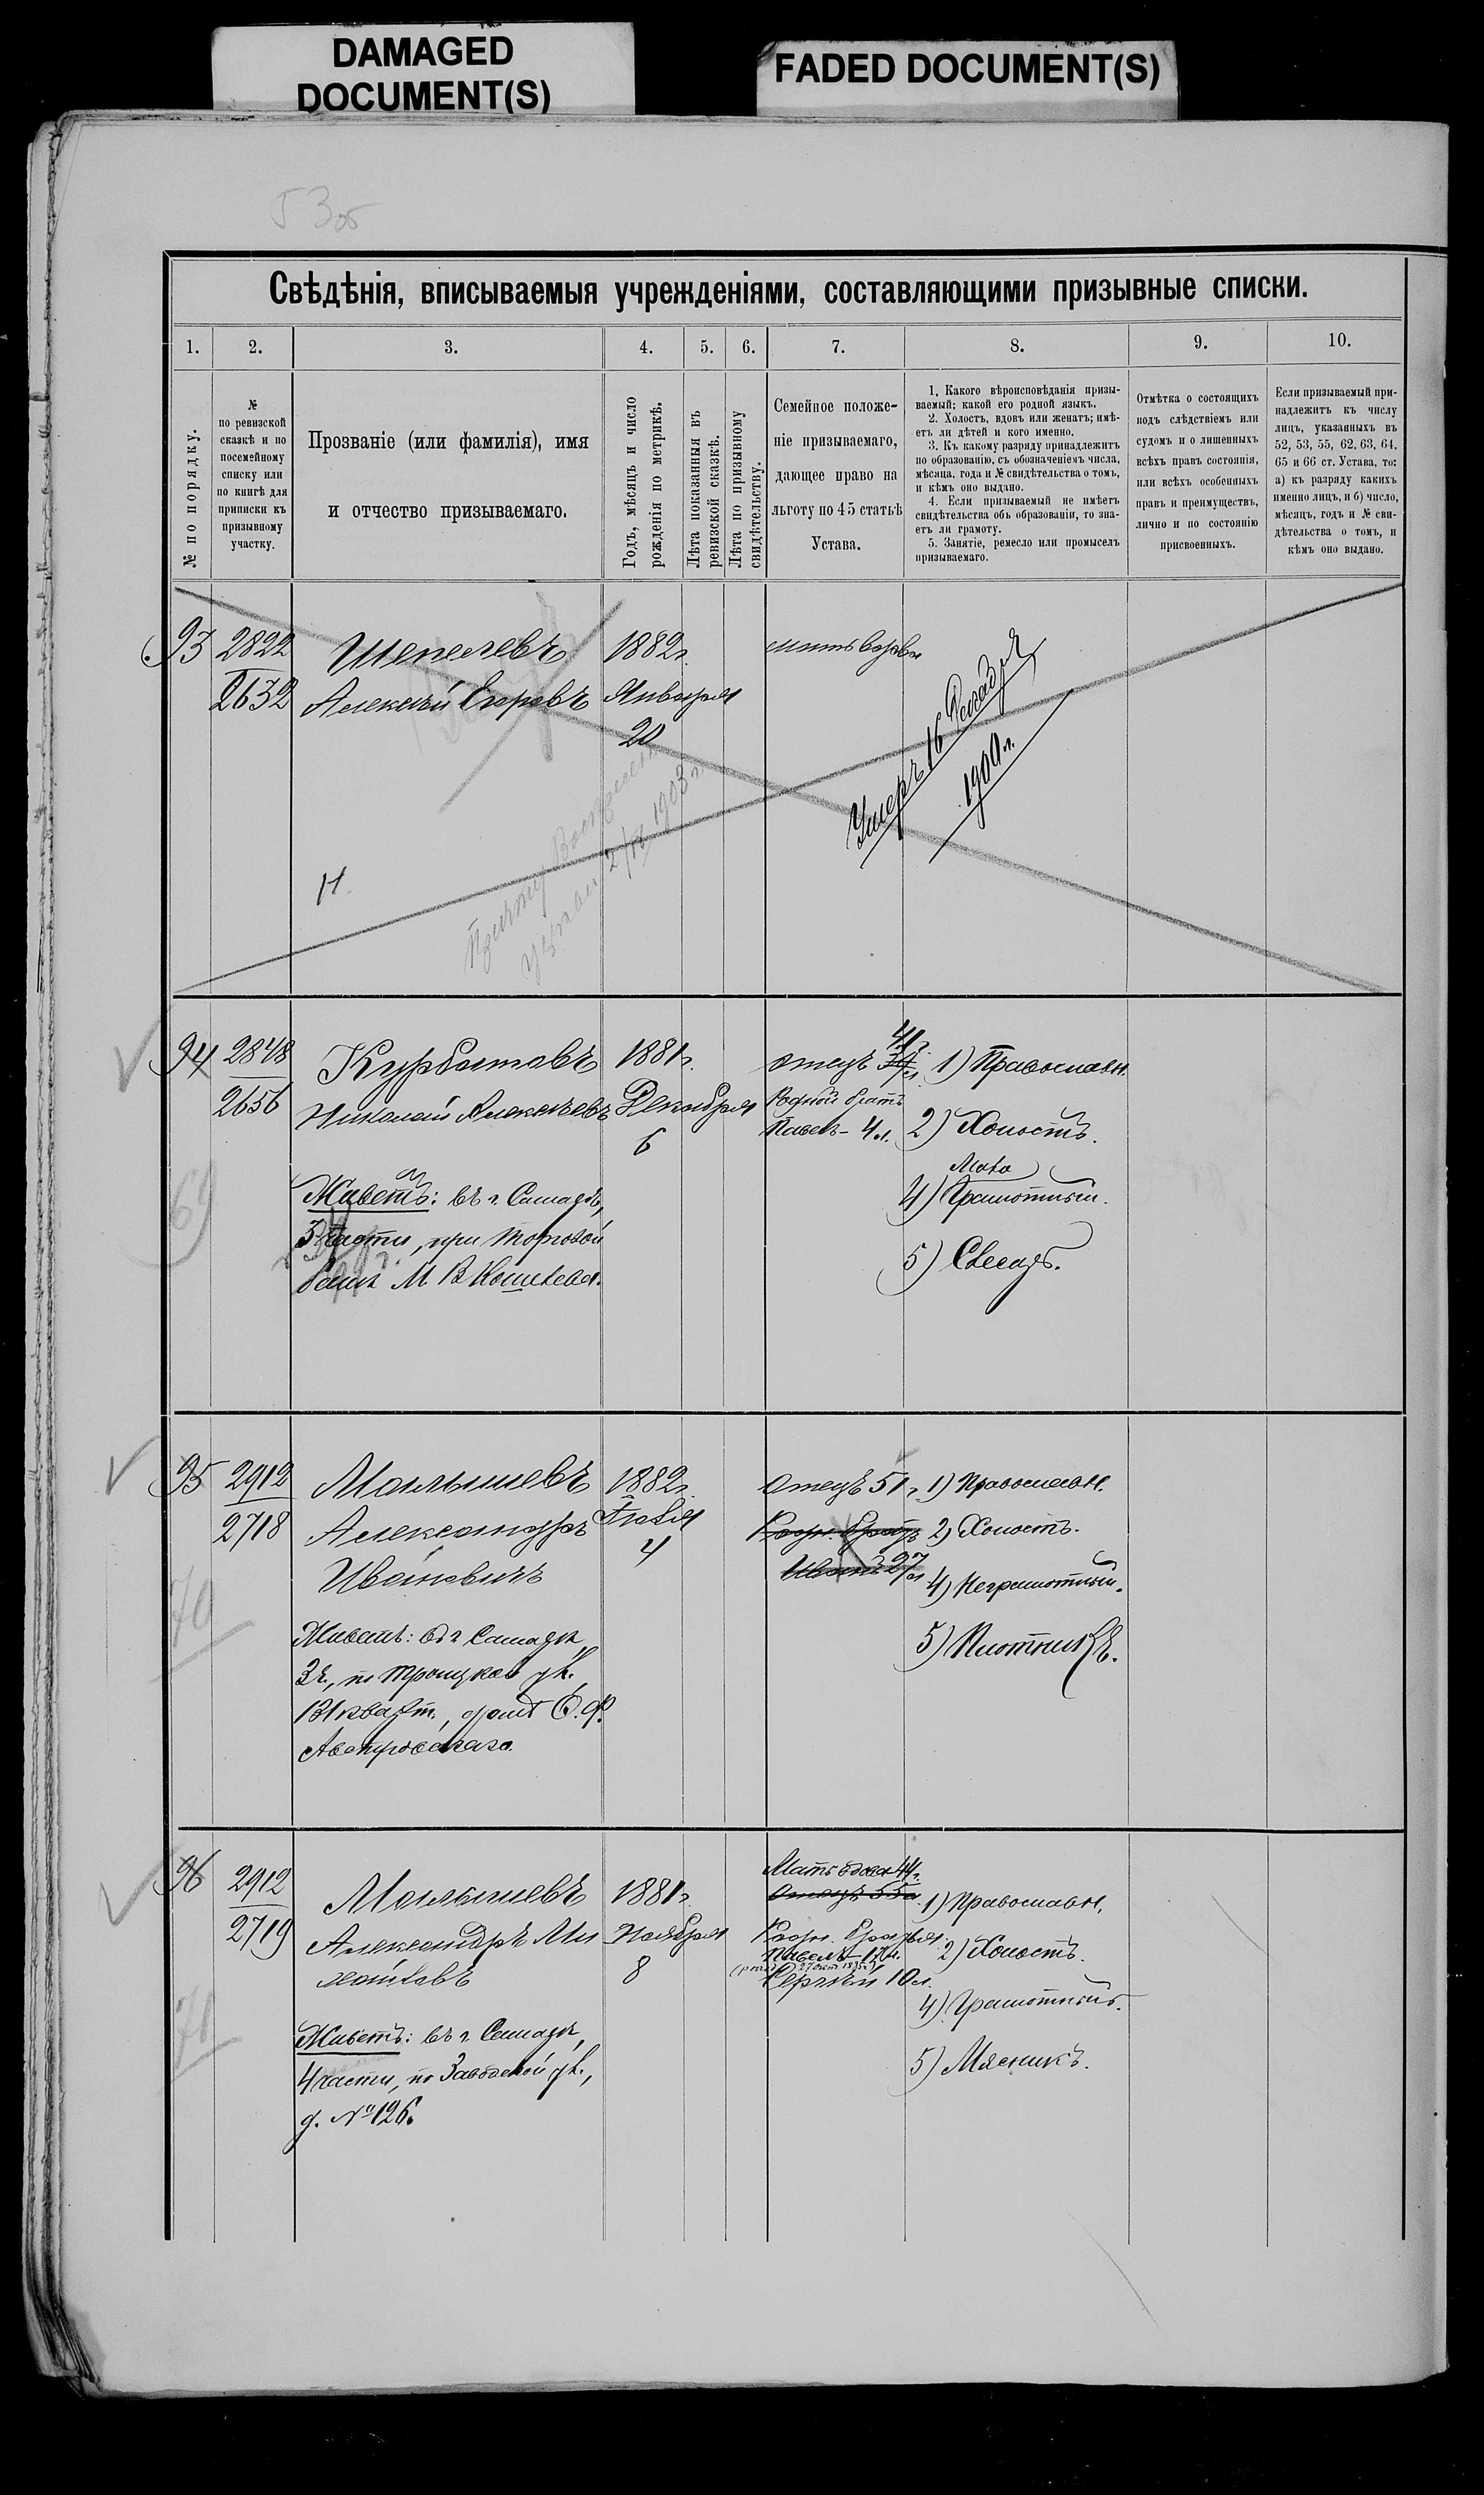 DAMAGED
DOCUMENT(S)
FADED DOCUMENT(S)
53об
Свѣдѣнія, вписываемыя учрежденіями, составляющими призывные списки.
1.
2.
3.
4.
5.
6.
7.
8.
9.
10.
№ по порядку.
№
по ревизской
сказкѣ и по
посемейному
списку или
по книгѣ для
приписки къ
призывному
участку.
Прозваніе (или фамилія), имя
и отчество призываемаго.
Годъ, мѣсяцъ и число
рожденія по метрикѣ.
Лѣта показанныя въ
ревизской сказкѣ.
Лѣта по призывному
свидѣтельству.
Семейное положе-
ніе призываемаго,
дающее право на
льготу по 45 статьѣ
Устава.
1. Какого вѣроисповѣданія призы-
ваемый; какой его родной языкъ.
2. Холостъ, вдовъ или женатъ; имѣ-
етъ ли дѣтей и кого именно.
3. Къ какому разряду принадлежитъ
по образованію, съ обозначеніемъ числа,
мѣсяца, года и № свидѣтельства о томъ,
и кѣмъ оно выдано.
4. Если призываемый не имѣетъ
свидѣтельства объ образованіи, то зна-
етъ ли грамоту.
5. Занятіе, ремесло или промыселъ
призываемаго.
Отмѣтка о состоящихъ
подъ слѣдствіемъ или
судомъ и о лишенныхъ
всѣхъ правъ состоянія,
или всѣхъ особенныхъ
правъ и преимуществъ,
лично и по состоянію
присвоенныхъ.
Если призываемый при-
надлежитъ къ числу
лицъ, указанныхъ въ
52, 53, 55, 62, 63, 64,
65 и 66 ст. Устава, то:
а) къ разряду какихъ
именно лицъ, и б) число,
мѣсяцъ, годъ и № сви-
дѣтельства о томъ, и
кѣмъ оно выдано.
93
2822
2632
Шепелевъ
Алексѣй Егоровъ
1882 г.
Января
20
мать вдова
Умеръ 16 Декабря
1900 г.
1903 г.
Н.
94
2848
2656
Курбатовъ
Николай Алексѣевъ
1881 г.
Декабря
6
41 г.
отецъ
Родной братъ
Павелъ - 4 л.
1) Православн.
2) Холостъ.
Мало
4) Грамотный.
5) Слесарь.
69
Живетъ: въ г. Самарѣ,
3 части, при торговой
банѣ М В
95
2912
2718
Малышевъ
Александръ
Ивановичъ
1882 г.
Іюля
4
отецъ 51 г.
Родн. братъ
Иванъ 27 л.
1) Православн.
2) Холостъ.
4) Неграмотный.
5) Плотникъ.
70
Живетъ: въ г. Самарѣ
3 ч., по Троицкой ул.
131 кварт., домъ
96
2912
2719
Малышевъ
Александръ Ми
хайловъ
1881 г.
Ноября
8
Мать вдова 44 г.
отецъ 55 л.
Родн. братья
Павелъ - 17 л.
Сергѣй 10 л.
1) Православн.
2) Холостъ.
4) Грамотный.
5) Мясникъ.
71
Живетъ: въ г. Самарѣ,
4 части, по Заводской ул.,
д. № 126.